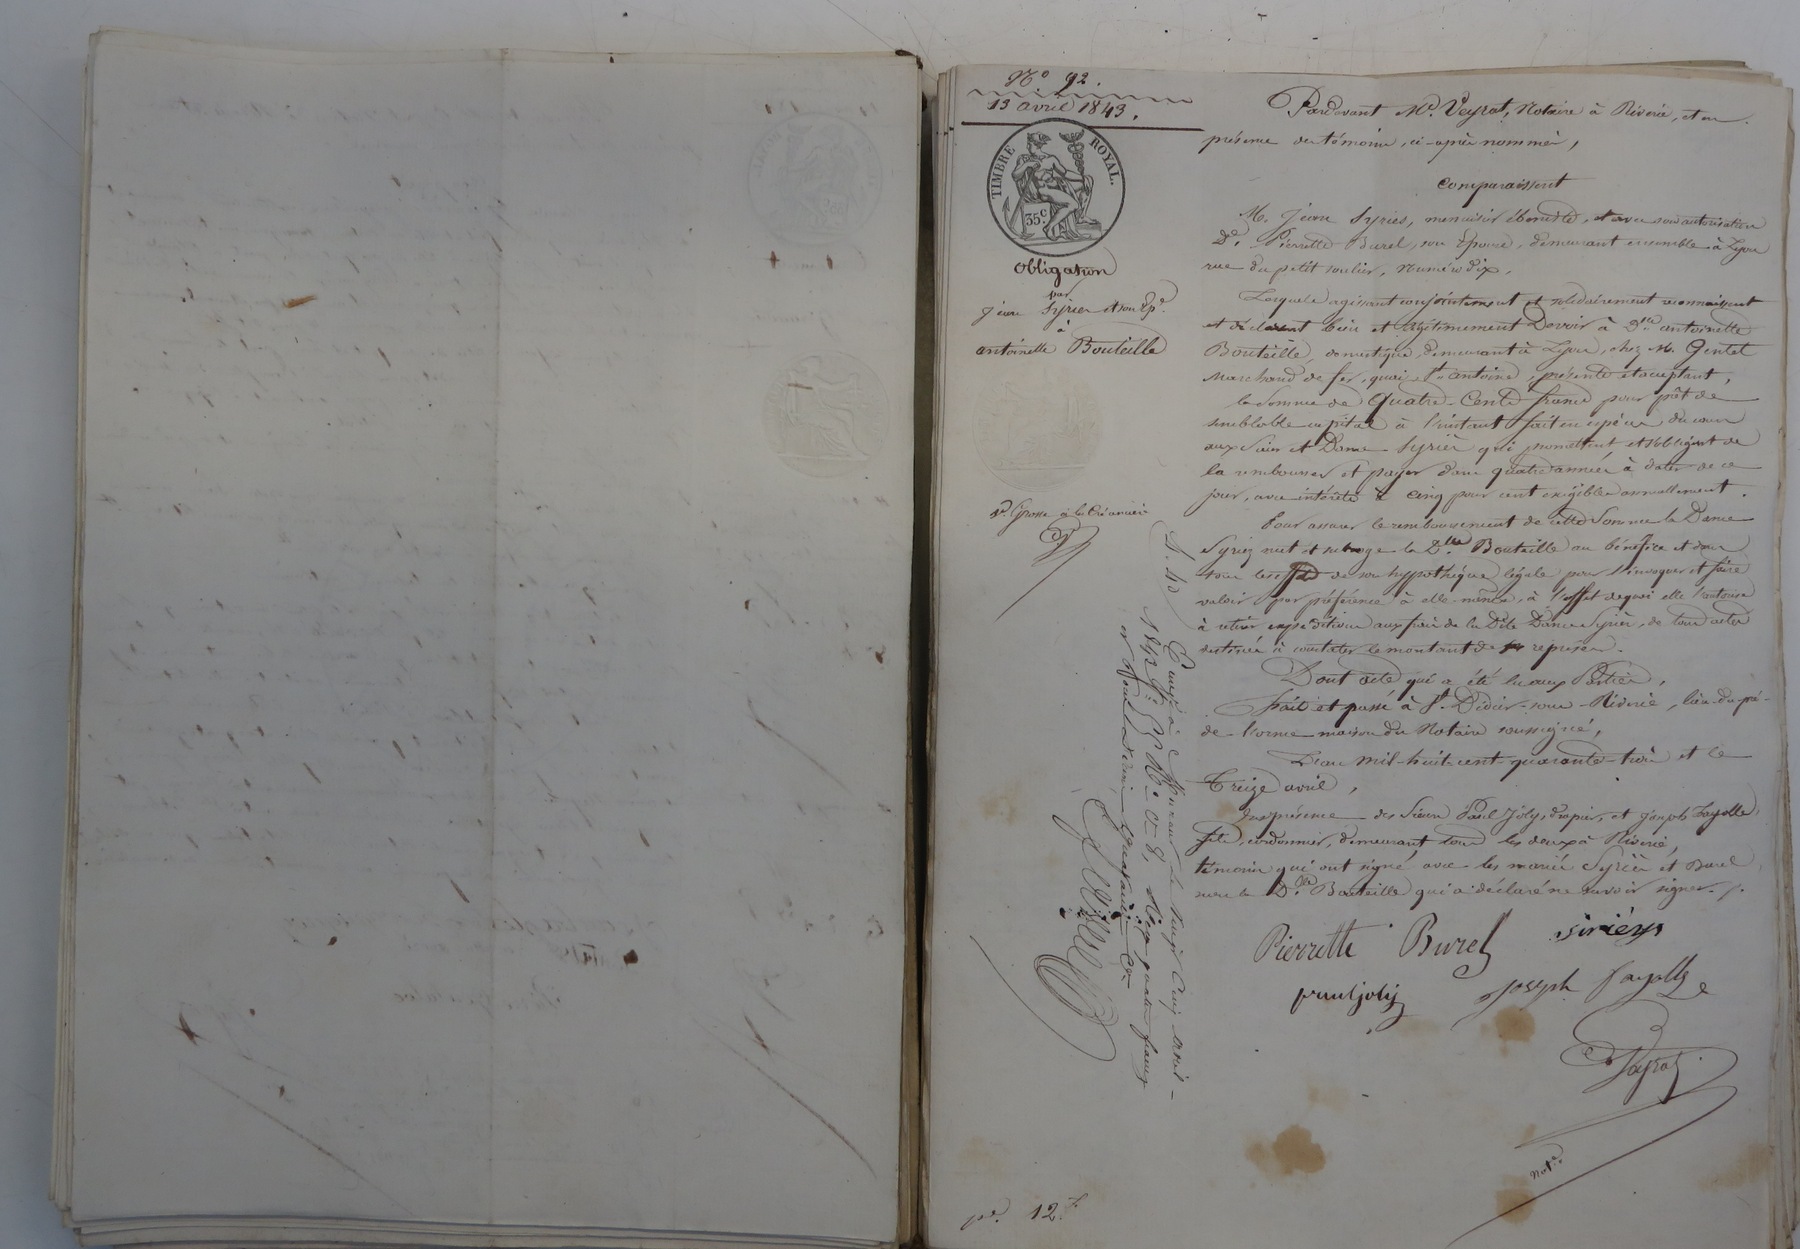 N° 92.
13 avril 1843.
TIMBRE ROYAL.
35 c
obligation
par
jean Syriès et son Ép.e
à
antoinette Bouteille
Grosse à la Créancière
Pardevant Me. Veyrat, Notaire à Riverie, et en
présence des témoins, ci-après nommés,
Comparaissent
M. Jean Syriès, menuisier ébéniste, et avec son autorisation
De. Pierrette Burel, son épouse, demeurant ensemble à Lyon
rue du petit soulier, Numéro dix.
Lesquels agissant conjointement et solidairement reconnaissent
et déclarent bien et légitimement Devoir à Dlle antoinette
Bouteille, domestique, demeurant à Lyon, chez M. Gentet
Marchand de fer, quai St antoine, présente et acceptant,
la Somme de Quatre-Cents francs pour prêt de
semblable capital à l'instant fait en espèces du cours
aux Sieur et Dame Syriès qui promettent et s'obligent de
la rembourser et payer dans quatre années à dater de ce
jour, avec intérêts à cinq pour cent exigibles annuellement.
Pour assurer le remboursement de cette Somme la Dame
Syriès met et subroge la Dlle Bouteille au bénéfice et dans
tous les effets de son hypothèque légale pour l'invoquer et faire
valoir par préférence à elle-même, à l'effet de quoi elle l'autorise
à retirer expéditions aux frais de la Dite Dame Syriès, de tous actes
destinés à constater le montant de reprises.
Dont acte qui a été lu aux Parties,
Fait et passé à St. Didier-sous-Riverie, lieu-du-pré-
de-l'orme maison du Notaire soussigné,
L'an mil-huit-cent-quarante-trois et le
Treize avril,
En présence des Sieurs Paul Joly, drapier, et Joseph Fayolle
fils, cordonnier, demeurant tous les deux à Riverie,
témoins qui ont signé avec les mariés Syriès et Burel
non la Dlle Bouteille qui a déclaré ne savoir signer.
Pierrette Burel
siriéys
paul joly
Joseph fayolle
Veyrat
Not.e
12 f